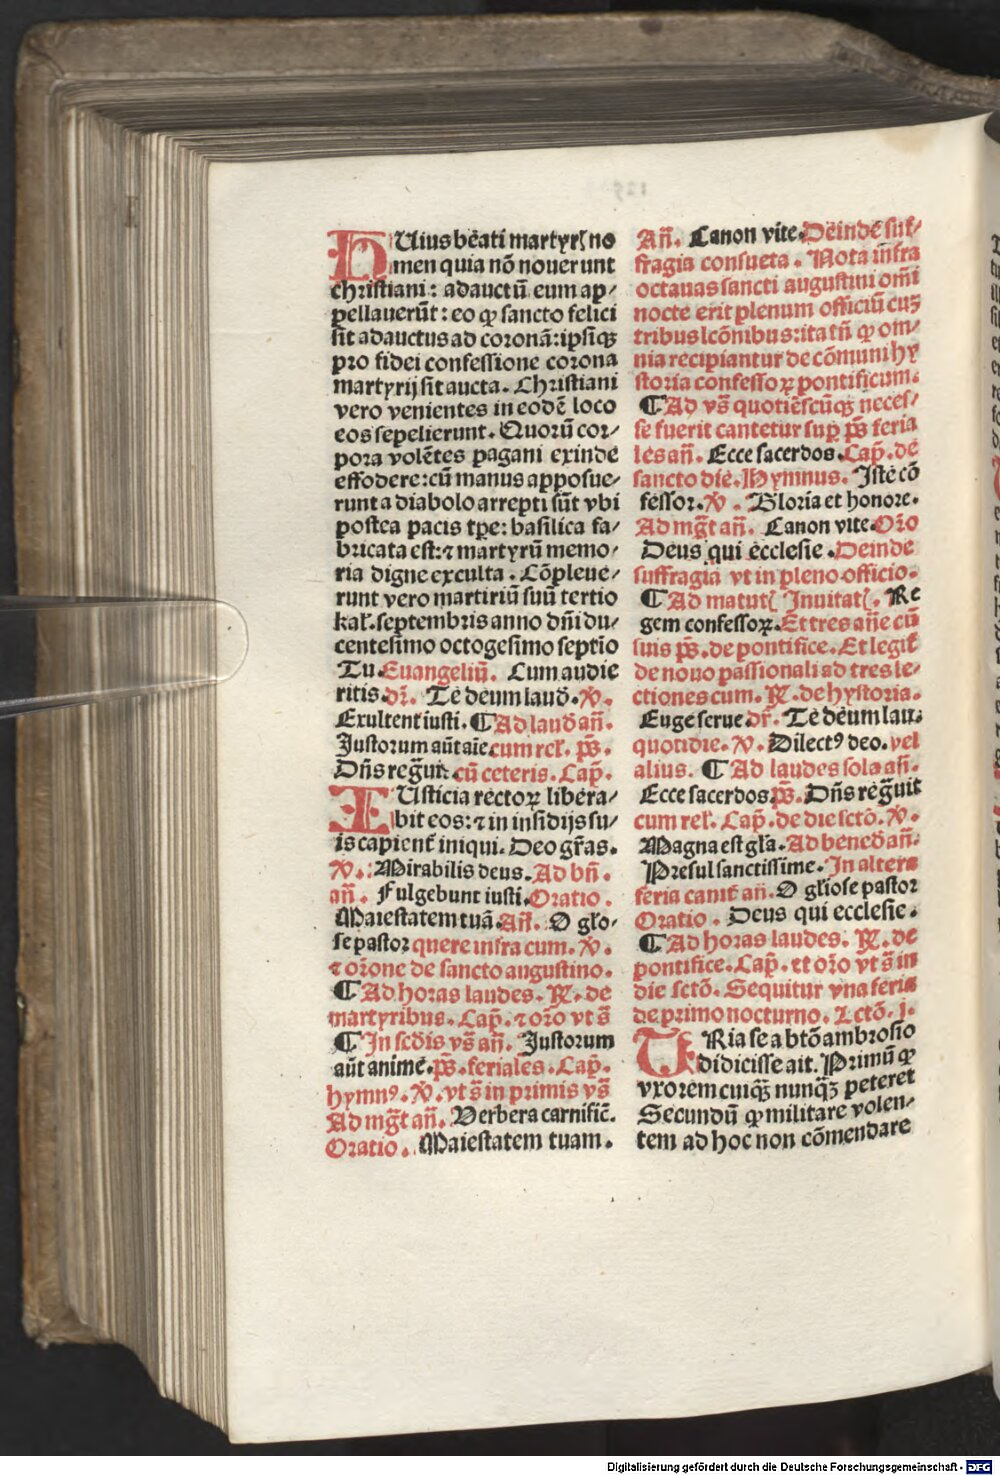 HUius beati martyrꝭ no
men quia nō nouerunt
christiani: adauctū eum ap⸗
pellauerūt: eo ꝙ sancto felici
sit adauctus ad coronā: ipsiqꝫ
pro fidei confessione corona
martyrij sit aucta. Christiani
vero venientes in eodē loco
eos sepelierunt. Quorū cor⸗
pora volētes pagani exinde
effodere: cū manus apposue⸗
runt a diabolo arrepti sūt vbi
postea pacis tꝑe: basilica fa⸗
bricata est: ⁊ martyrū memo⸗
ria digne exculta. Cōpleue⸗
runt vero martiriū suū tertio
kal̕. septembris anno dn̄i du⸗
centesimo octogesimo septīo
Tu. Euangeliū. Cum audie
ritis. dr̄. Te deum laud̄. ꝟ.
Exultent iusti. ¶ Ad laud̄ an̄.
Justorum aūt aīe. cum rel̕. p̄s.
Dn̄s regn̄it. cū ceteris. Cap̄.
IUsticia rectoꝝ libera⸗
bit eos: ⁊ in insidijs su⸗
is capient̄ iniqui. Deo gr̄as.
ꝟ.: Mirabilis deus. Ad bn̄.
an̄. Fulgebunt iusti. Oratio.
Maiestatem tuā. An̄. O glo⸗
se pastor quere infra cum. ꝟ.
⁊ orōne de sancto augustino.
¶ Ad horas laudes. ꝶ. de
martyribus. Cap̄. ⁊ orō vt s̄
¶ In scd̄is vs̄ an̄. Justorum
aūt anime. p̄s. feriales. Cap̄.
hymnꝰ. ꝟ. vt s̄ in primis vs̄
Ad mg̅t an̄. Verbera carnific̄.
Oratio. Maiestatem tuam.
An̄. Canon vite. Deinde suf⸗
fragia consueta. Nota infra
octauas sancti augustini om̄i
nocte erit plenum officiū cuꝫ
tribus lcōnibus: ita tn̄ ꝙ om⸗
nia recipiantur de cōmuni hy
storia confessoꝝ pontificum.
¶ Ad vs̄ quotiēscūqꝫ neces⸗
se fuerit cantetur sup̄ p̄s feria
les an̄. Ecce sacerdos. Cap̄. de
sancto die. Hymnus. Iste cō
fessor. ꝟ. Gloria et honore.
Ad mg̅t an̄. Canon vite. Orō
Deus qui ecclesie. Deinde
suffragia vt in pleno officio.
¶ Ad matutꝭ Inuitatꝭ. Re
gem confessoꝝ. Et tres an̄e cū
suis p̄s. de pontifice. Et legit̄
de nouo passionali ad tres le⸗
ctiones cum. ꝶ. de hystoria.
Euge serue. dr̄. Te deum lau:
quotidie. ꝟ. Dilectꝰ deo. vel
alius. ¶ Ad laudes sola an̄.
Ecce sacerdos. p̄s. Dn̄s regn̄uit
cum rel̕. Cap̄. de die sctō. ꝟ.
Magna est gl̄a. Ad bened̄ an̄.
Presul sanctissime. In altera
feria canit̄ an̄. O gl̄iose pastor
Oratio. Deus qui ecclesie.
¶ Ad horas laudes. ꝶ. de
pontifice. Cap̄. et orō vt s̄ in
die sctō. Sequitur vna feria
de primo nocturno. Lctō. j.
TRia se a btō ambrosio
didicisse ait. Primū ꝙ
vxorem cuiqꝫ nunqꝫ peteret
Secundū ꝙ militare volen⸗
tem ad hoc non cōmendare
Digitalisierung gefördert durch die Deutsche Forschungsgemeinschaft - DFG